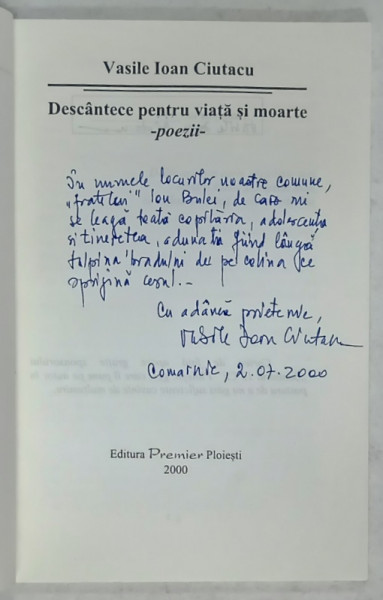 Vasile Ioan Ciutacu
Descântece pentru viață și moarte
-poezii-
În numele locurilor noastre comune,
"fratelui" Ion Bulei, de care mi
se leagă toată copilăria, adolescența
și tinerețea, adunată fiind lângă
tulpina bradului de pe colina ce
sprijină cerul.-
Cu adâncă prietenie,
Vasile Ioan Ciutacu
Comarnic, 2.07.2000
Editura Premier Ploiești
2000